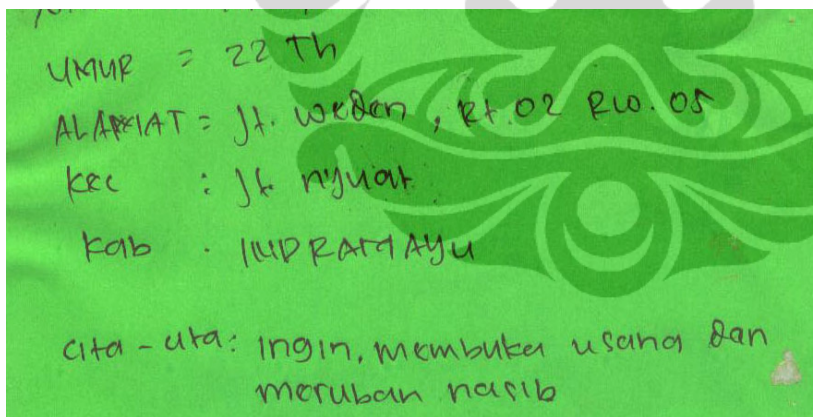 UMUR = 22 Th
ALAMAT = Jt. weden, Rt.02 RW.05
kec : Jt nyuat
kab . INDRAMAYU
cita-cita: ingin, membuka usaha dan
merubah nasib